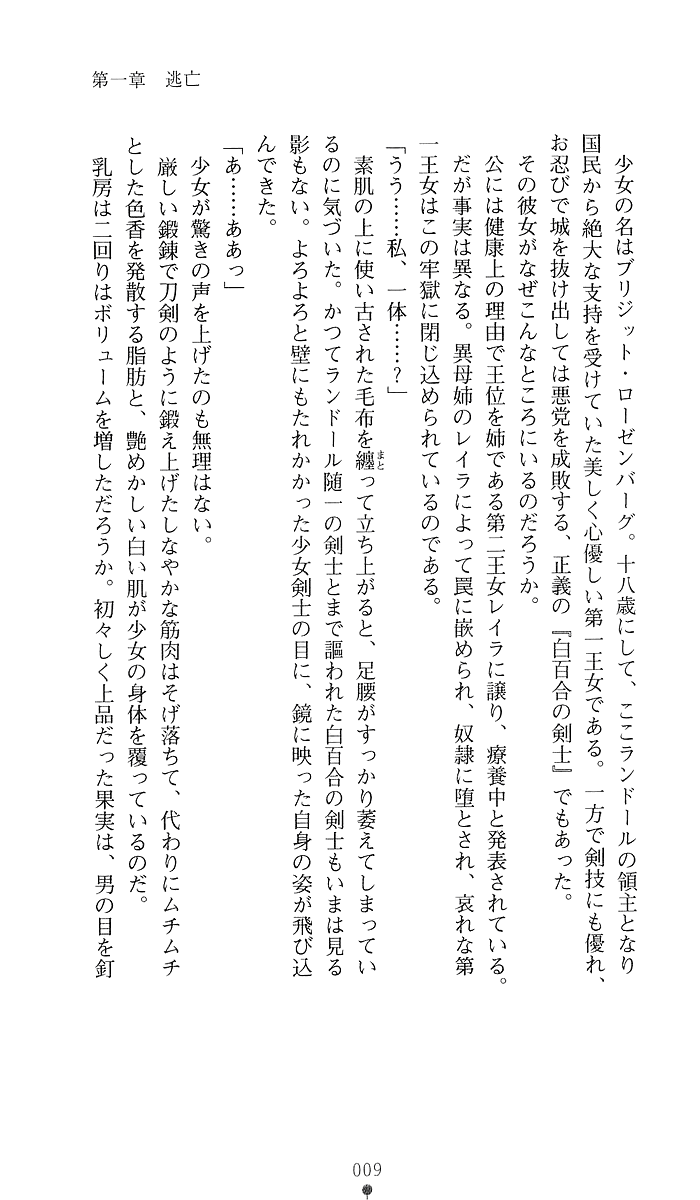 第一章　逃亡
　少女の名はブリジット・ローゼンバーグ。十八歳にして、ここランドールの領主となり
国民から絶大な支持を受けていた美しく心優しい第一王女である。一方で剣技にも優れ、
お忍びで城を抜け出しては悪党を成敗する、正義の『白百合の剣士』でもあった。
　その彼女がなぜこんなところにいるのだろうか。
　公には健康上の理由で王位を姉である第二王女レイラに譲り、療養中と発表されている。
　だが事実は異なる。異母姉のレイラによって罠に嵌められ、奴隷に堕とされ、哀れな第
一王女はこの牢獄に閉じ込められているのである。
「うう……私、一体……？」
　素肌の上に使い古された毛布を纏まとって立ち上がると、足腰がすっかり萎えてしまってい
るのに気づいた。かつてランドール随一の剣士とまで謳われた白百合の剣士もいまは見る
影もない。よろよろと壁にもたれかかった少女剣士の目に、鏡に映った自身の姿が飛び込
んできた。
「あ……ああっ」
　少女が驚きの声を上げたのも無理はない。
　厳しい鍛錬で刀剣のように鍛え上げたしなやかな筋肉はそげ落ちて、代わりにムチムチ
とした色香を発散する脂肪と、艶めかしい白い肌が少女の身体を覆っているのだ。
　乳房は二回りはボリュームを増しただろうか。初々しく上品だった果実は、男の目を釘
009